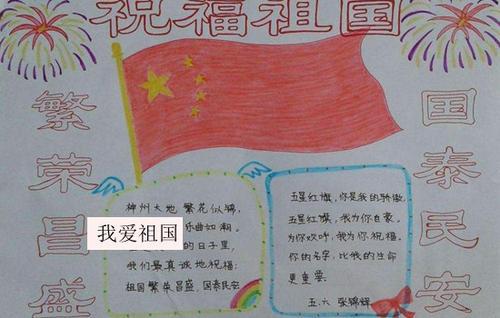 祝福祖国
繁荣昌盛
国泰民安
神州大地 繁花似锦,
乐曲如潮。
我爱祖国
的日子里,
我们最真诚地祝福:
祖国繁荣昌盛,国泰民安
五星红旗,你是我的骄傲,
五星红旗,我为你自豪。
为你欢呼,我为你祝福。
你的名字,比我的生命
更重要
五.六 张锦辉